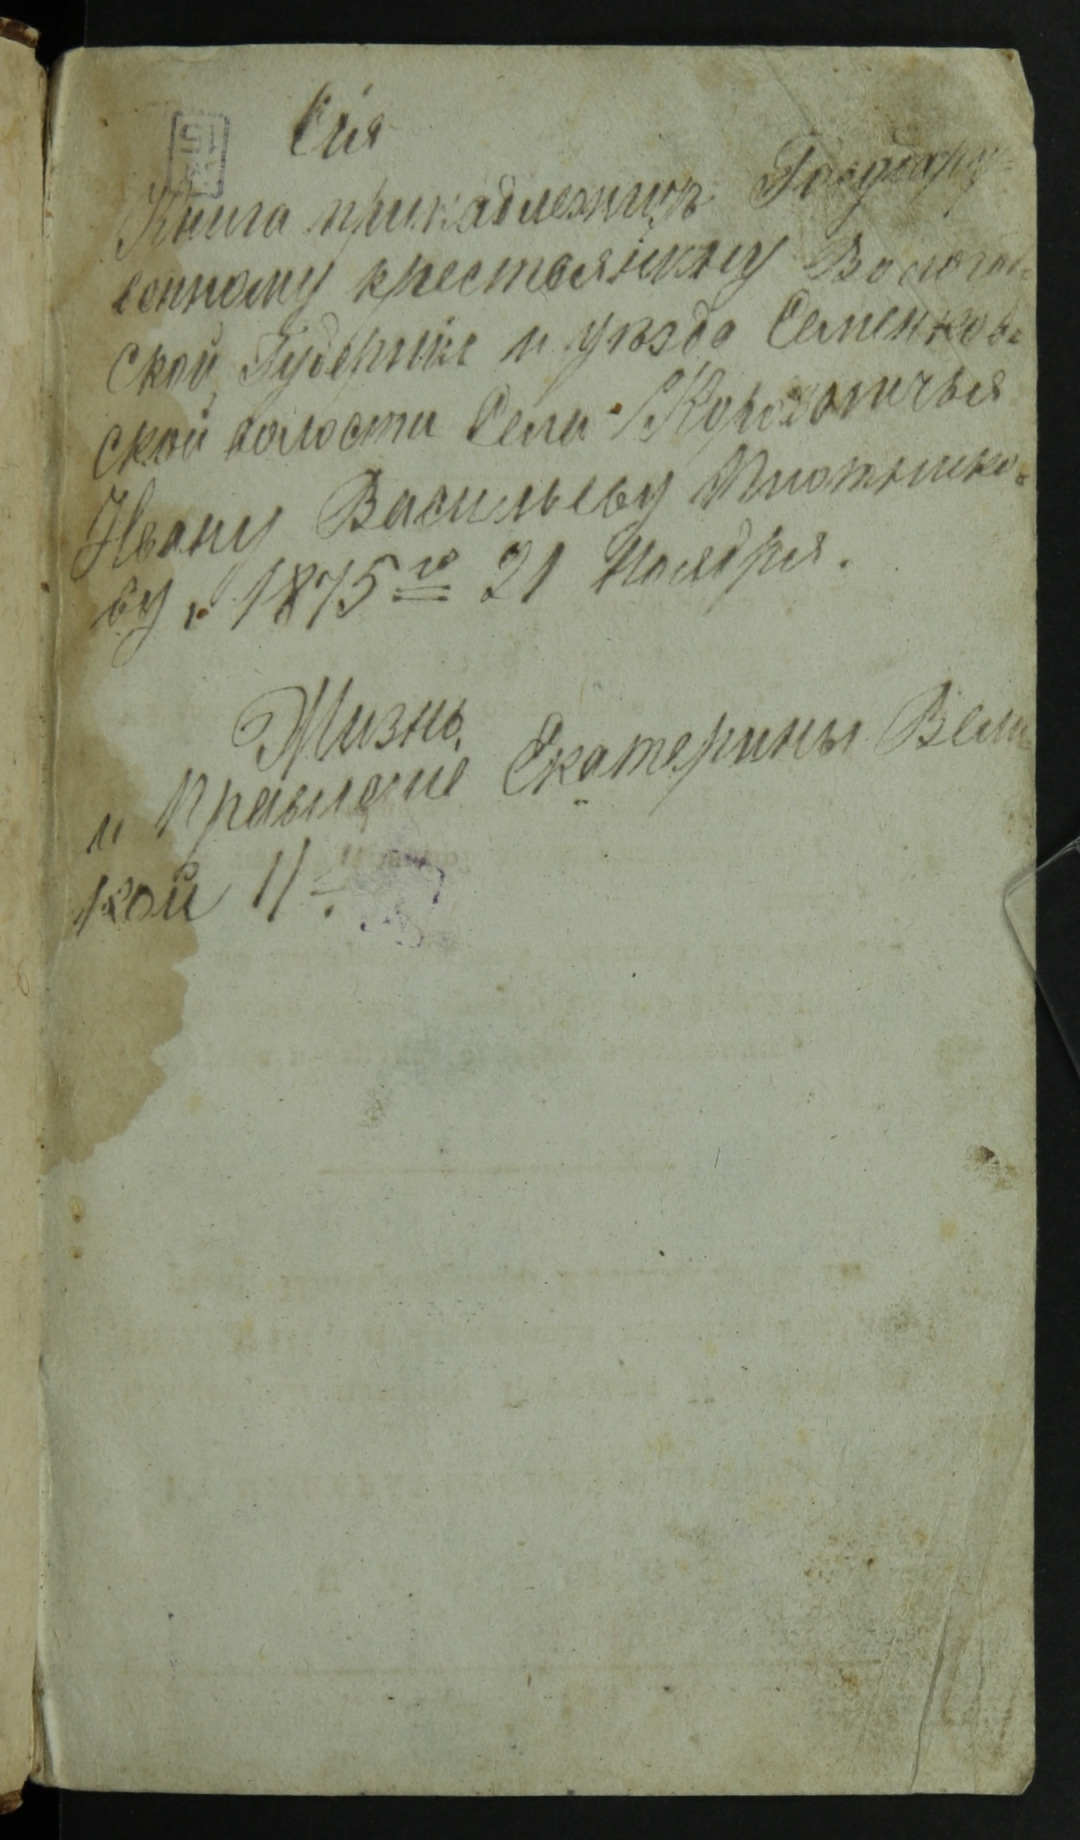 Сія
Книга принадлежитъ Государ
венному крестьянину Вологод-
ской Губерніе и уѣзда Семенков-
ской волости Села
Ивану Васильеву Плотнико-
ву, 1875го 21 Ноября.
Жизнь
и Правление Екатерины Вели
кой II